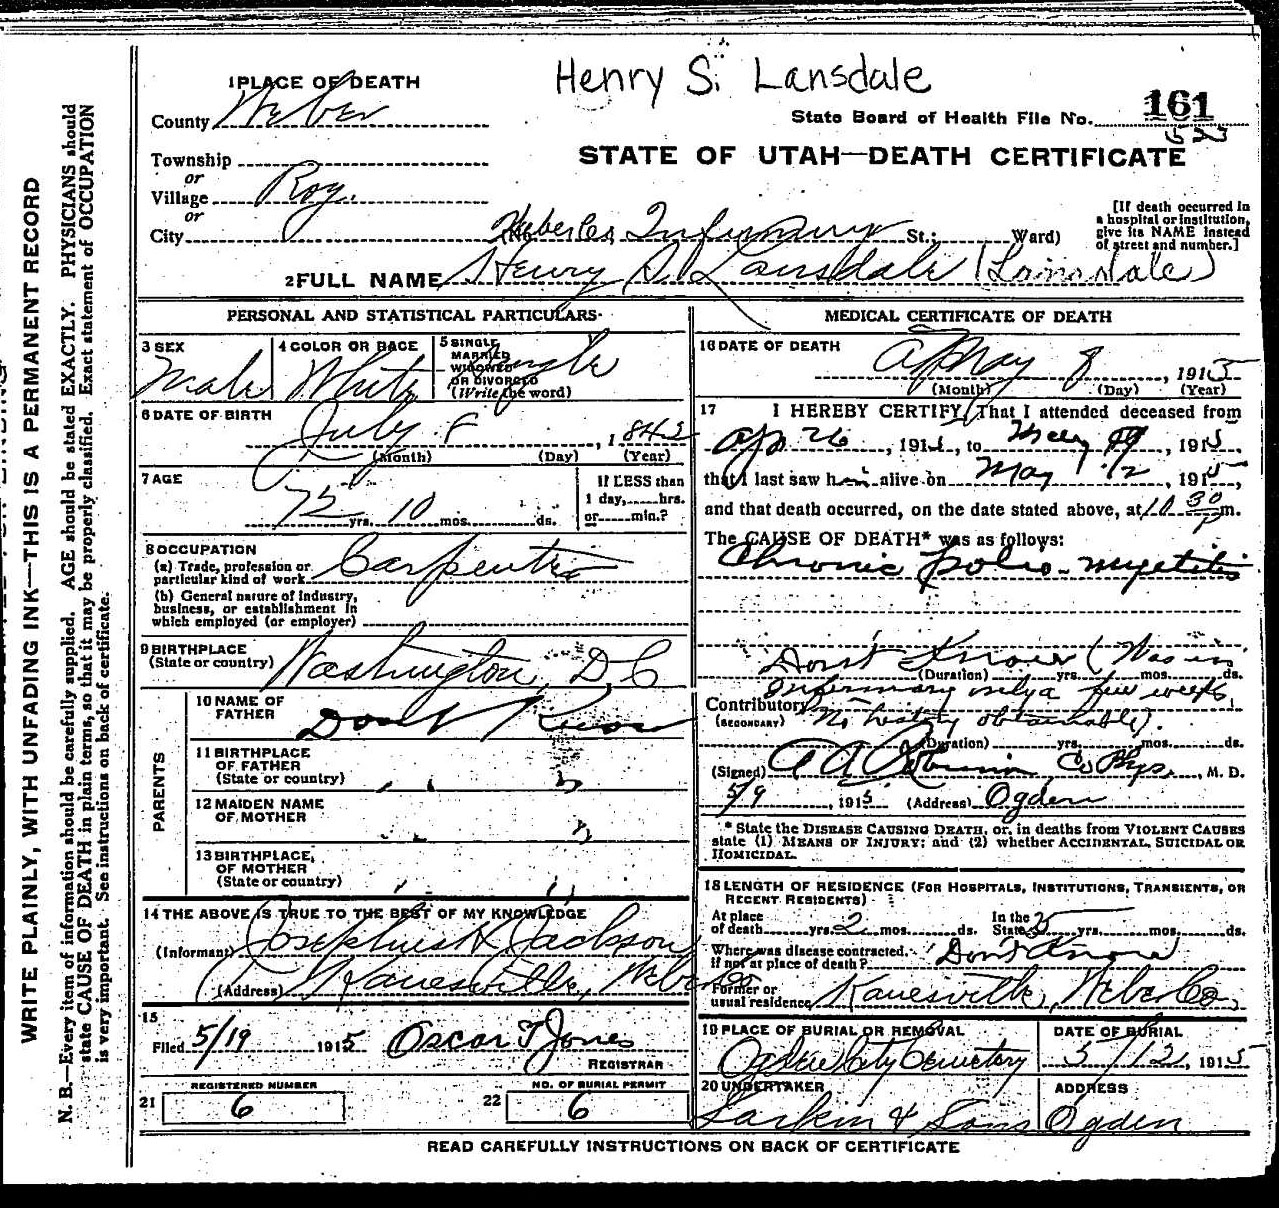 Henry S. Lansdale
1 PLACE OF DEATH
County Weber
State Board of Health File No. 161
Township
STATE OF UTAH—DEATH CERTIFICATE
or
Village Roy.
or
City (No. Weber Co Infirmary St.; Ward)
[If death occurred in
a hospital or institution,
give its NAME instead
of street and number.]
2 FULL NAME Henry S. Lansdale (Lansdale)
PERSONAL AND STATISTICAL PARTICULARS
3 SEX Male
4 COLOR OR RACE White
5 SINGLE
MARRIED
WIDOWED
OR DIVORCED
(Write the word) Single
6 DATE OF BIRTH
July 8, 1842
(Month) (Day) (Year)
7 AGE
72 yrs. 10 mos. ds.
If LESS than
1 day, hrs.
or min.?
8 OCCUPATION
(a) Trade, profession or
particular kind of work Carpenter
(b) General nature of industry,
business, or establishment in
which employed (or employer)
9 BIRTHPLACE
(State or country) Washington, D C
PARENTS
10 NAME OF
FATHER Don't Know
11 BIRTHPLACE
OF FATHER
(State or country) " "
12 MAIDEN NAME
OF MOTHER " "
13 BIRTHPLACE
OF MOTHER
(State or country) " "
14 THE ABOVE IS TRUE TO THE BEST OF MY KNOWLEDGE
(Informant) Josephus H Jackson
(Address) Kanesville, Weber Co
15
Filed 5/19 1915 Oscar T Jones
REGISTRAR
REGISTERED NUMBER
21 6
NO. OF BURIAL PERMIT
22 6
MEDICAL CERTIFICATE OF DEATH
16 DATE OF DEATH
May 8, 1915
(Month) (Day) (Year)
17 I HEREBY CERTIFY, That I attended deceased from
Apr 26, 1915, to May 9, 1915,
that I last saw him alive on May 2, 1915,
and that death occurred, on the date stated above, at 10 30 P m.
The CAUSE OF DEATH* was as follows:
Chronic polio-myetitis
Don't Know (Was in
(Duration) yrs. mos. ds.
Infirmary only a few weeks
Contributory
(SECONDARY) No history obtainable).
(Duration) yrs. mos. ds.
(Signed) A A Robinson Co Phys., M. D.
5/9, 1915 (Address) Ogden
* State the DISEASE CAUSING DEATH, or, in deaths from VIOLENT CAUSES
state (1) MEANS OF INJURY; and (2) whether ACCIDENTAL, SUICIDAL OR
HOMICIDAL.
18 LENGTH OF RESIDENCE (FOR HOSPITALS, INSTITUTIONS, TRANSIENTS, OR
RECENT RESIDENTS)
At place
of death yrs. 2 mos. ds.
In the
State 35 yrs. mos. ds.
Where was disease contracted,
if not at place of death? Don't Know
Former or
usual residence Kanesville, Weber Co.
19 PLACE OF BURIAL OR REMOVAL
Ogden City Cemetery
DATE OF BURIAL
5/12, 1915
20 UNDERTAKER
Larkin & Sons
ADDRESS
Ogden
READ CAREFULLY INSTRUCTIONS ON BACK OF CERTIFICATE
WRITE PLAINLY, WITH UNFADING INK—THIS IS A PERMANENT RECORD
N. B.—Every item of information should be carefully supplied. AGE should be stated EXACTLY. PHYSICIANS should
state CAUSE OF DEATH in plain terms, so that it may be properly classified. Exact statement of OCCUPATION
is very important. See instructions on back of certificate.